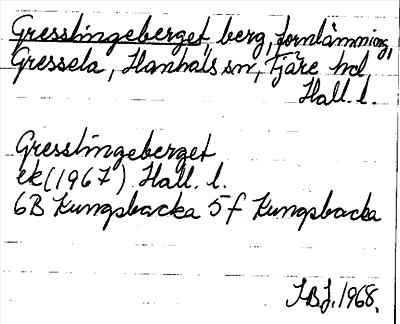 Gresslingeberget, berg, fornlämning,
Gressela, Hanhals sn, Fjäre hd
Hall. l.
Gresslingeberget
ek (1967) Hall. l.
6B Kungsbacka 5f Kungsbacka
1968.